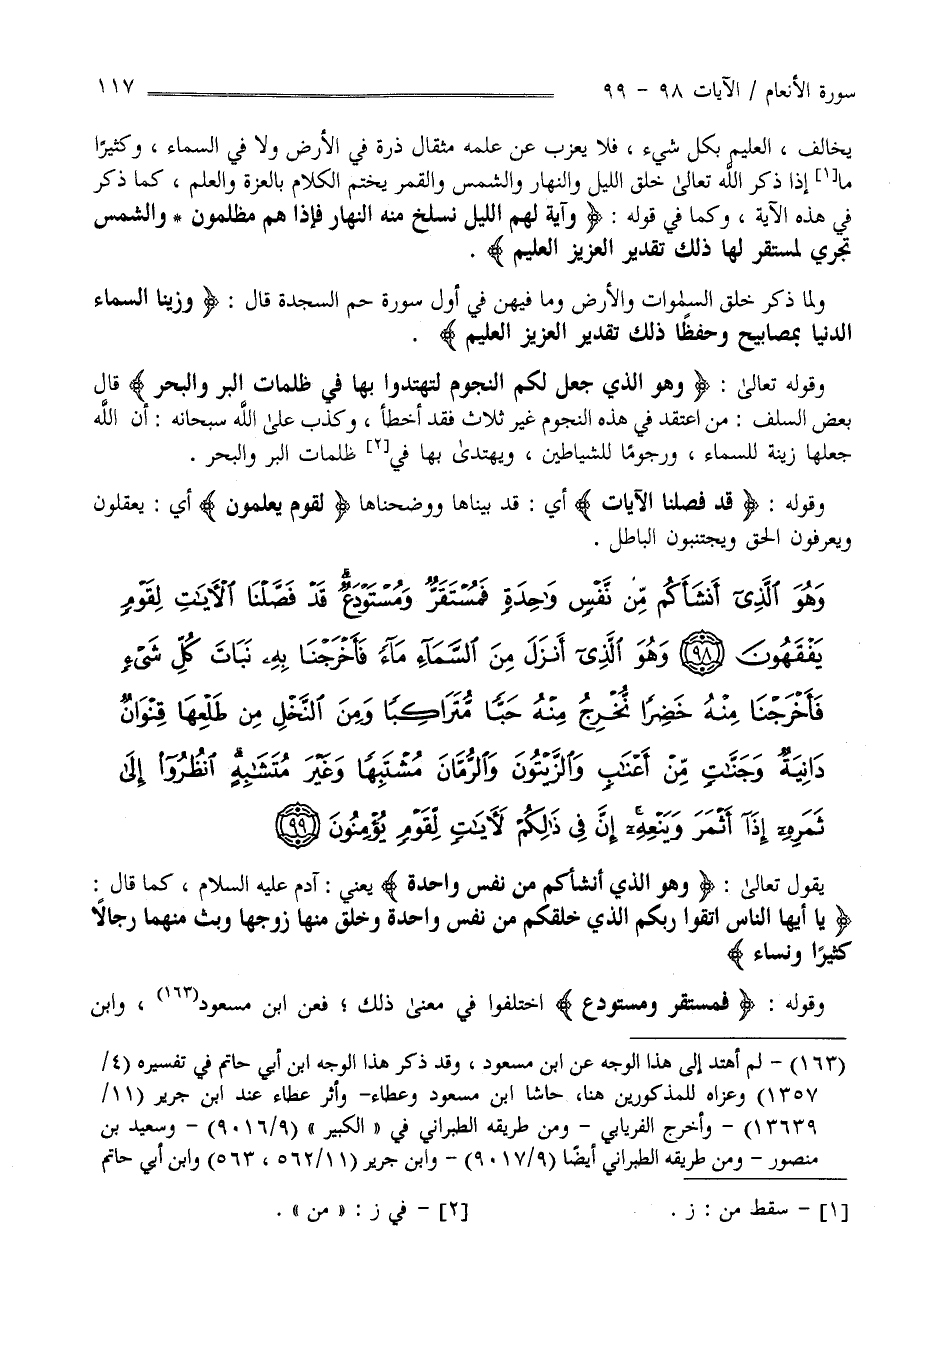 سورة الأنعام / الآيات ٩٨ - ٩٩ ١١٧
يخالف ، العليم بكل شيء ، فلا يعزب عن علمه مثقال ذرة في الأرض ولا في السماء ، وكثيرًا
ما[١] إذا ذكر اللَّه تعالىٰ خلق الليل والنهار والشمس والقمر يختم الكلام بالعزة والعلم ، كما ذكر
في هذه الآية ، وكما في قوله : ﴿ وآية لهم الليل نسلخ منه النهار فإذا هم مظلمون * والشمس
تجري لمستقر لها ذلك تقدير العزيز العليم ﴾ .
ولما ذكر خلق السمٰوات والأرض وما فيهن في أول سورة حم السجدة قال : ﴿ وزينا السماء
الدنيا بمصابيح وحفظًا ذلك تقدير العزيز العليم ﴾ .
وقوله تعالىٰ : ﴿ وهو الذي جعل لكم النجوم لتهتدوا بها في ظلمات البر والبحر ﴾ قال
بعض السلف : من اعتقد في هذه النجوم غير ثلاث فقد أخطأ ، وكذب علىٰ اللَّه سبحانه : أن اللَّه
جعلها زينة للسماء ، ورجومًا للشياطين ، ويهتدىٰ بها في[٢] ظلمات البر والبحر .
وقوله : ﴿ قد فصلنا الآيات ﴾ أي : قد بيناها ووضحناها ﴿ لقوم يعلمون ﴾ أي : يعقلون
ويعرفون الحق ويجتنبون الباطل .
وَهُوَ ٱلَّذِىٓ أَنشَأَكُم مِّن نَّفْسٍ وَٰحِدَةٍ فَمُسْتَقَرٌّ وَمُسْتَوْدَعٌ ۗ قَدْ فَصَّلْنَا ٱلْأَيَٰتِ لِقَوْمٍ
يَفْقَهُونَ ﴿٩٨﴾ وَهُوَ ٱلَّذِىٓ أَنزَلَ مِنَ ٱلسَّمَآءِ مَآءً فَأَخْرَجْنَا بِهِۦ نَبَاتَ كُلِّ شَىْءٍ
فَأَخْرَجْنَا مِنْهُ خَضِرًا نُّخْرِجُ مِنْهُ حَبًّا مُّتَرَاكِبًا وَمِنَ ٱلنَّخْلِ مِن طَلْعِهَا قِنْوَانٌ
دَانِيَةٌ وَجَنَّٰتٍ مِّنْ أَعْنَابٍ وَٱلزَّيْتُونَ وَٱلرُّمَّانَ مُشْتَبِهًا وَغَيْرَ مُتَشَٰبِهٍ ۗ ٱنظُرُوٓا۟ إِلَىٰ
ثَمَرِهِۦٓ إِذَآ أَثْمَرَ وَيَنْعِهِۦٓ ۚ إِنَّ فِى ذَٰلِكُمْ لَءَايَٰتٍ لِّقَوْمٍ يُؤْمِنُونَ ﴿٩٩﴾
يقول تعالىٰ : ﴿ وهو الذي أنشأكم من نفس واحدة ﴾ يعني : آدم عليه السلام ، كما قال :
﴿ يا أيها الناس اتقوا ربكم الذي خلقكم من نفس واحدة وخلق منها زوجها وبث منهما رجالًا
كثيرًا ونساء ﴾
وقوله : ﴿ فمستقر ومستودع ﴾ اختلفوا في معنىٰ ذلك ؛ فعن ابن مسعود(١٦٣) ، وابن
(١٦٣) - لم أهتد إلى هذا الوجه عن ابن مسعود ، وقد ذكر هذا الوجه ابن أبي حاتم في تفسيره (٤/
١٣٥٧) وعزاه للمذكورين هنا، حاشا ابن مسعود وعطاء- وأثر عطاء عند ابن جرير (١١/
١٣٦٣٩) - وأخرج الفريابي - ومن طريقه الطبراني في « الكبير » (٩٠١٦/٩) - وسعيد بن
منصور - ومن طريقه الطبراني أيضًا (٩٠١٧/٩) - وابن جرير (٥٦٢/١١ ، ٥٦٣) وابن أبي حاتم
[١] - سقط من : ز . [٢] - في ز : « من » .